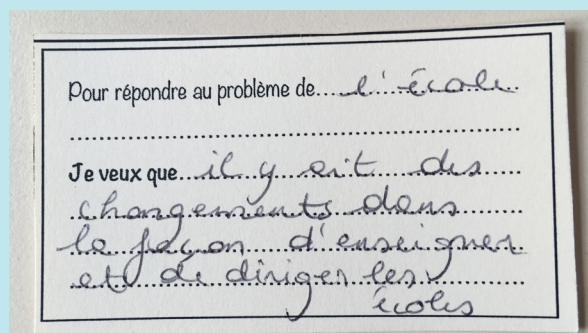 Pour répondre au problème de.....l'école.
..............................
Je veux que...il y ait des.....
changements dans
la façon d'enseigner
et de diriger les
écoles